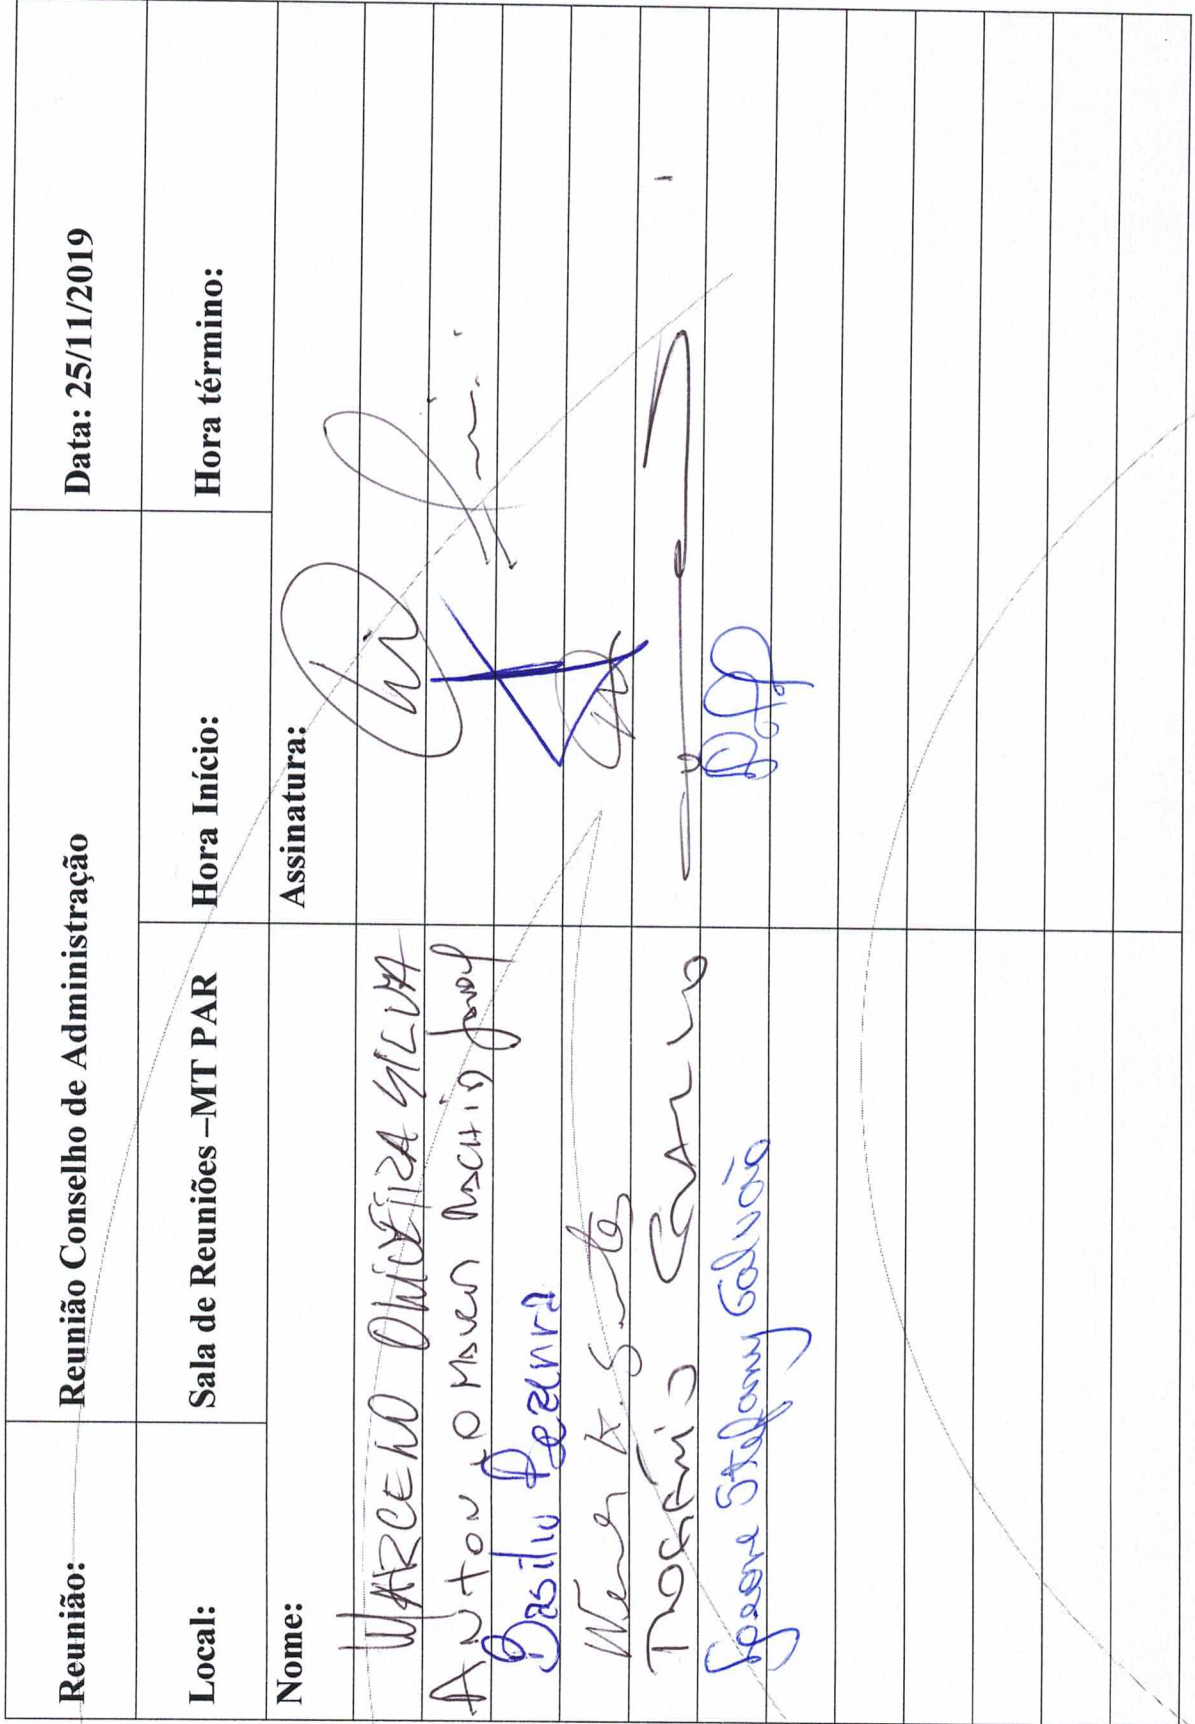 Reunião: Reunião Conselho de Administração Data: 25/11/2019
Local: Sala de Reuniões –MT PAR Hora Início: Hora término:
Nome: Assinatura:
MARCELO OLIVEIRA SILVA
ANTONIO
Basilio Bezerra
Werner K. Santos
Carvalho
Joeane Stefamy Galvão